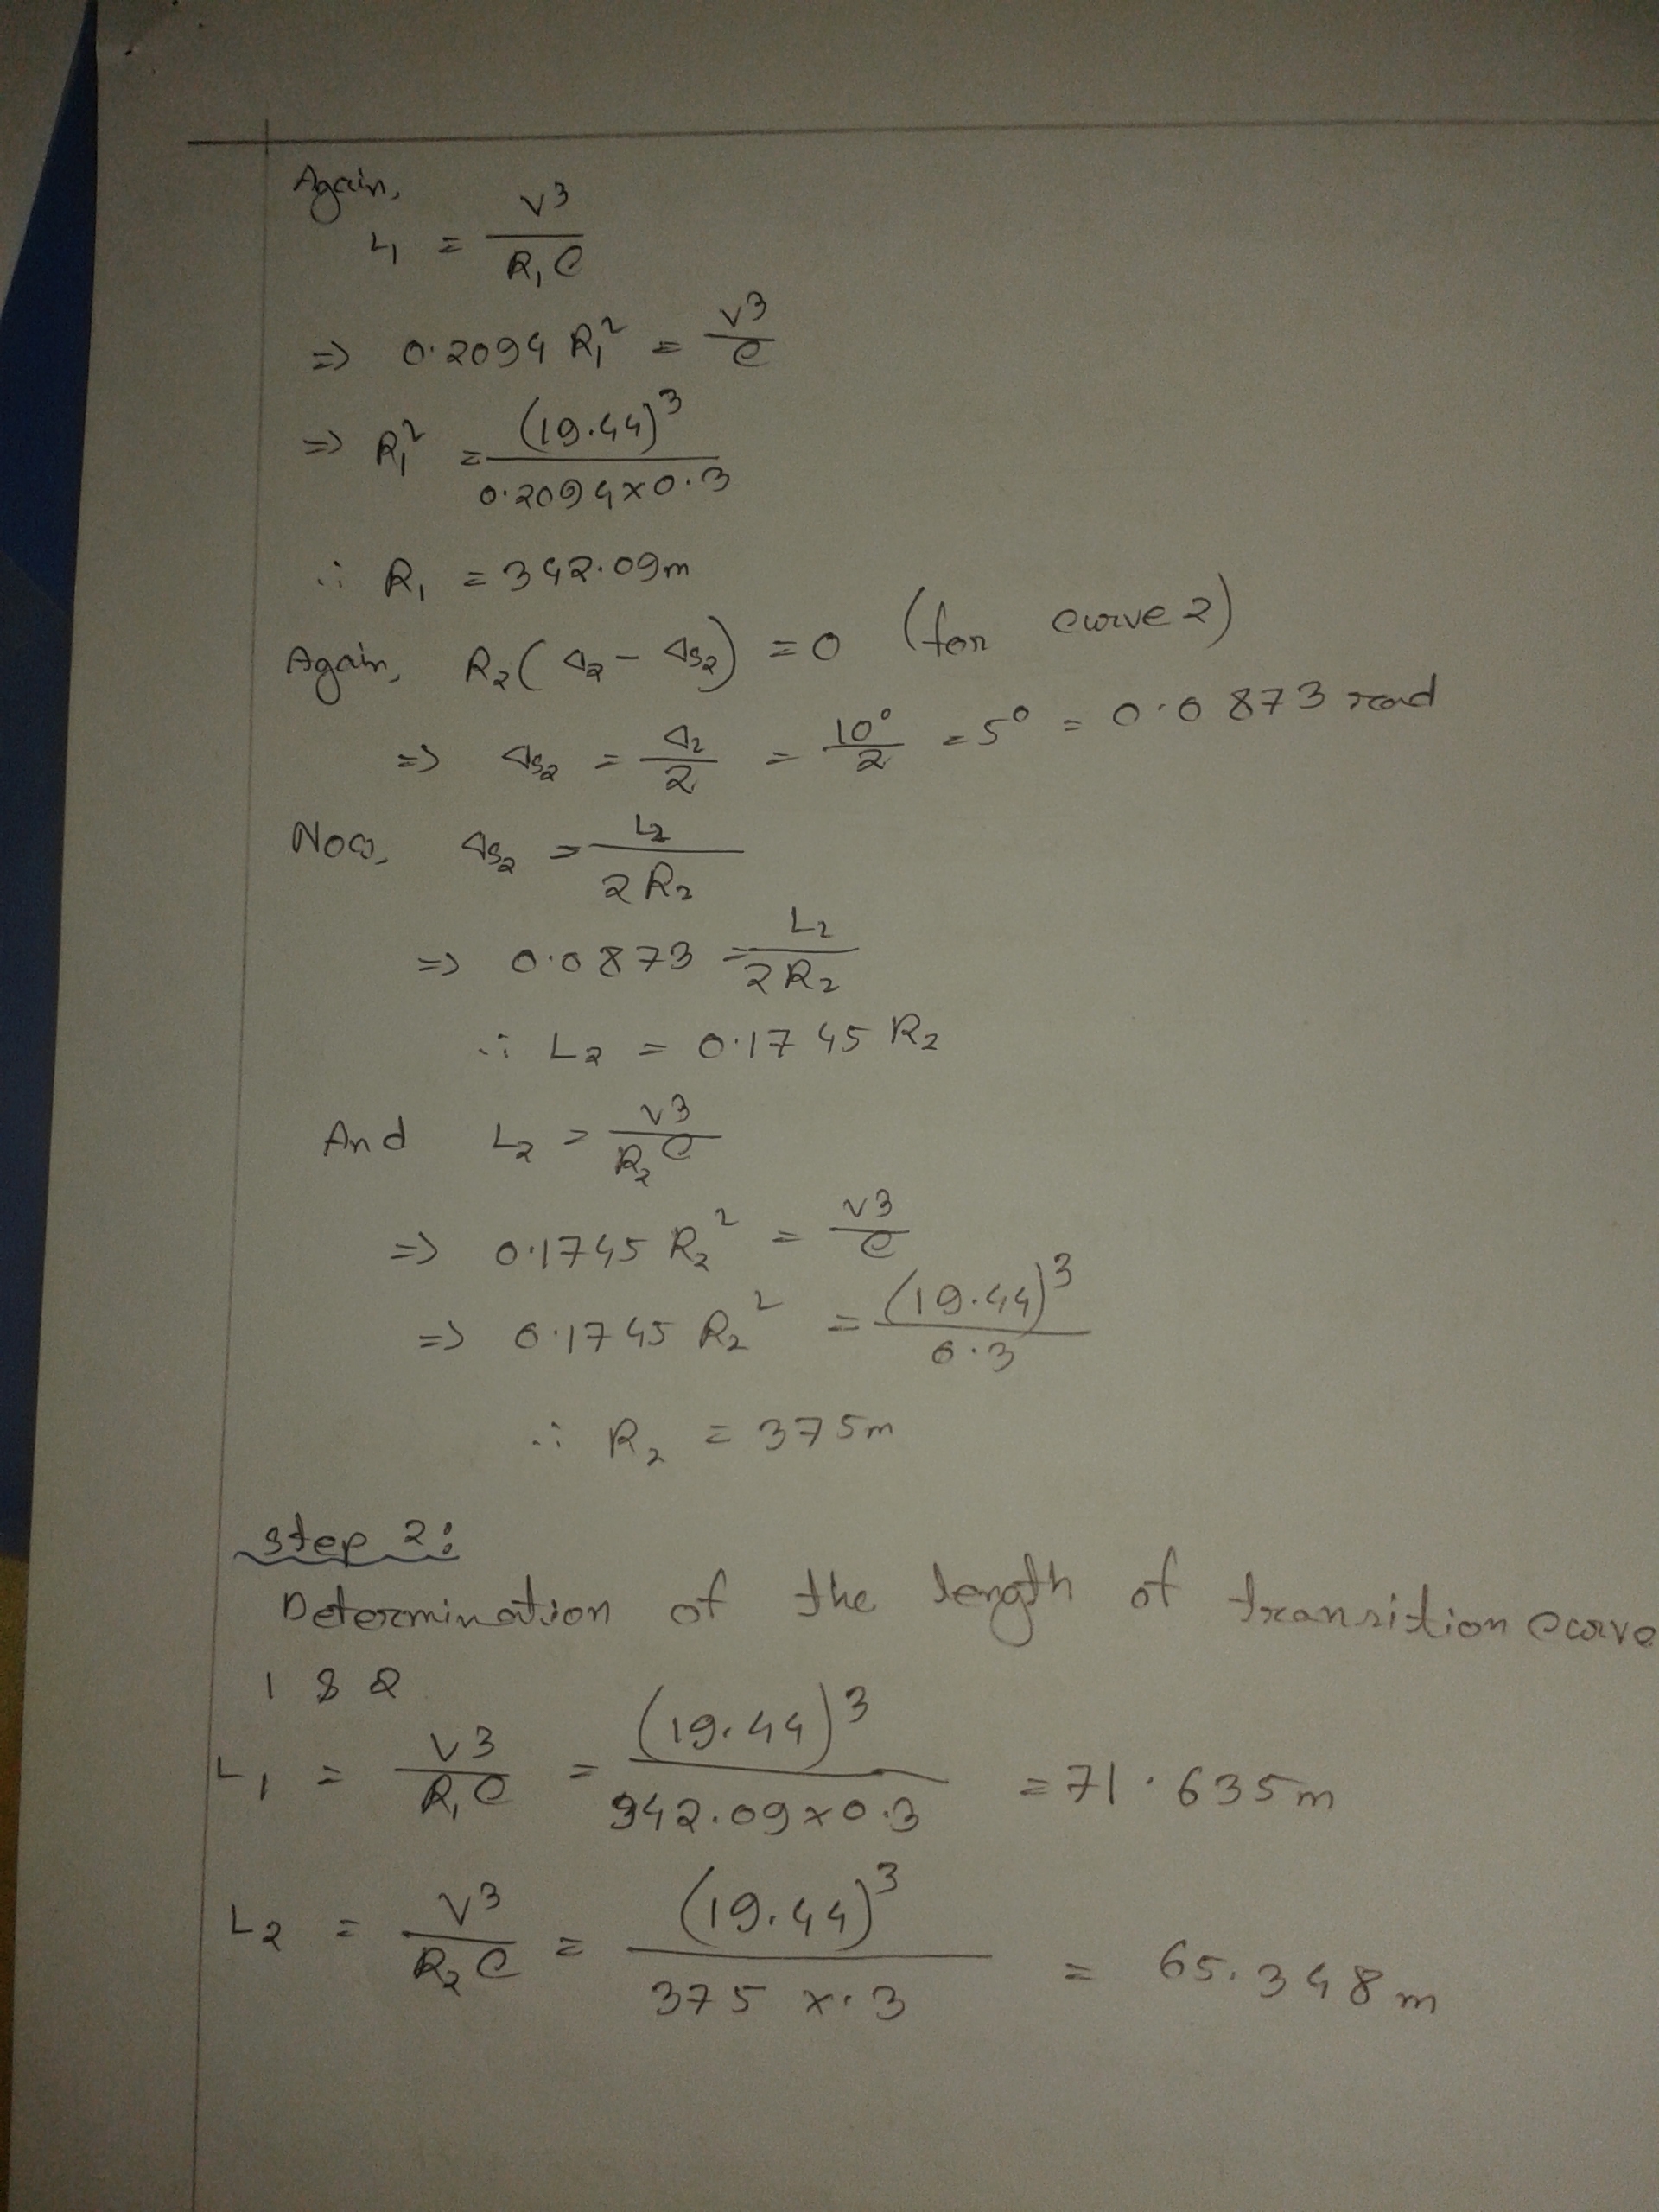 Again,
L₁ = v³ / R₁C
=> 0.2094 R₁² = v³ / C
=> R₁² = (19.44)³ / 0.2094×0.3
∴ R₁ = 342.09m
Again, R₂(Δ₂ - Δs₂) = 0 (for curve 2)
=> Δs₂ = Δ₂ / 2 = 10° / 2 = 5° = 0.0873 rad
Now, Δs₂ = L₂ / 2R₂
=> 0.0873 = L₂ / 2R₂
∴ L₂ = 0.1745 R₂
And L₂ = v³ / R₂C
=> 0.1745 R₂² = v³ / C
=> 0.1745 R₂² = (19.44)³ / 0.3
∴ R₂ = 375m
Step 2:
Determination of the length of transition curve
1 & 2
L₁ = v³ / R₁C = (19.44)³ / 342.09×0.3 = 71.635m
L₂ = v³ / R₂C = (19.44)³ / 375 ×.3 = 65.348m